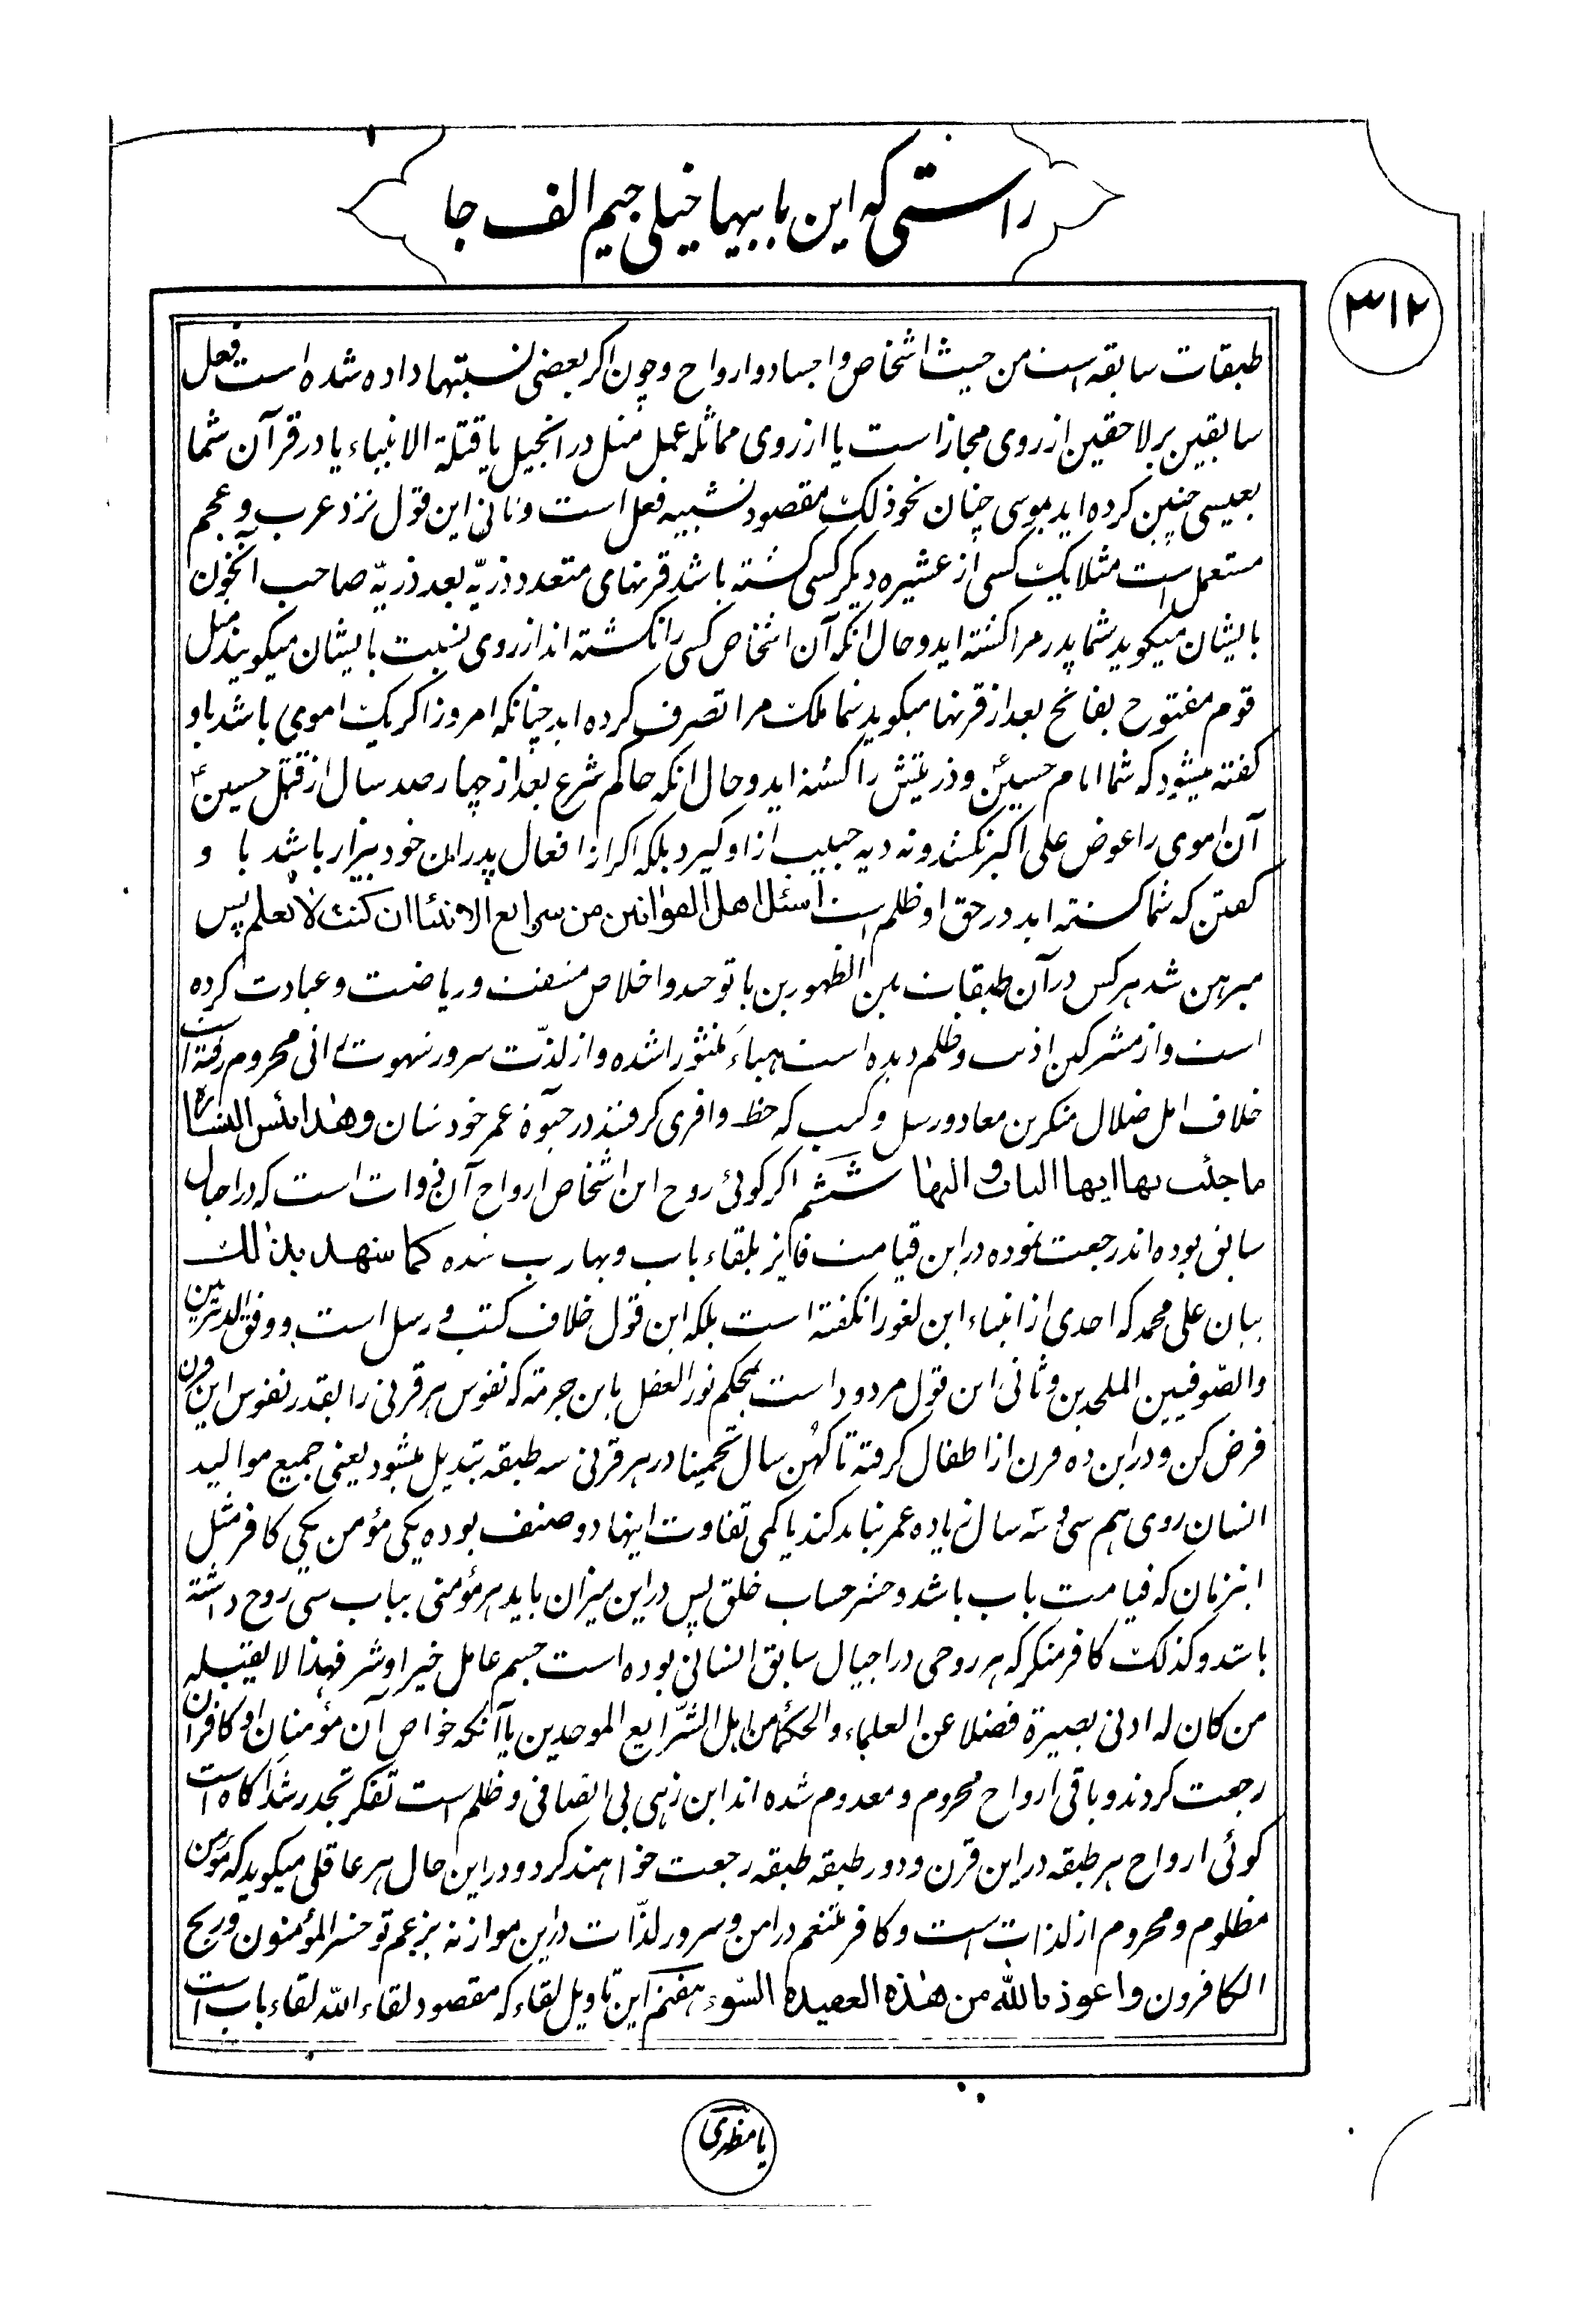 راستی که این بابیها خیلی جیم الف جا
۳۱۲
طبقات سابقه است من حیث اشخاص و اجساد و ارواح و چون اکر بعضی نسبتها داده شده است فعل
سابقین بر لاحقین از روی مجاز است یا از روی مماثله عمل مثل در انجیل یا قتلة الانبیاء یا در قرآن شما
بعیسی چنین کرده اید بموسی چنان نحو ذلک مقصود تشبیه فعل است وثانی این قول نزد عرب و عجم
مستعمل است مثلا یک کسی از عشیره دیکر کسی کشته باشد قرنهای متعدد ذریّه بعد ذریّه صاحب آنخون
بایشان میکوید شما پدر مرا کشته اید و حال انکه آن اشخاص کسی را نکشته اند از روی نسبت بایشان میکویند مثل
قوم مفتوح بفاتح بعد از قرنها میکوید شما ملک مرا تصرف کرده اید چنانکه امروز اکر یک اموی باشد باو
کفته میشود که شما امام حسین ع و ذریتش را کشته اید و حال انکه حاکم شرع بعد از چهار صد سال از قتل حسین ع
آن اموی را عوض علی اکبر نکشد و نه دیه حبیب از او کیرد بلکه اکر از افعال پدران خود بیزار باشد با و
کفتن که شما کشته اید در حق او ظلم است اسئل اهل القوانین من شرایع الانبیاء ان کنت لا تعلم پس
مبرهن شد هر کس در آن طبقات بین الظهورین با توحید و اخلاص مشقت و ریاضت و عبادت کرده
است و از مشرکین اذیت و ظلم دیده است هباءً منثورا شده و از لذّت سرور شهوت انی محروم رفته است
خلاف اهل ضلال منکرین معاد و رسل و کتب که حظ وافری کرفتند در حیوة عمر خودشان و هذا بئس البشارة
ما جئت بها ایها الباب و البهاء ششم اکر کوئی روح این اشخاص ارواح آن ذوات است که در اجیال
سابق بوده اند رجعت نموده در این قیامت فایز بلقاء باب و بهارب شده کما شهد بذلک
بیان علی محمد که احدی از انبیاء این لغو را نکفته است بلکه این قول خلاف کتب و رسل است و وفق الدهریین
والصّوفیین الملحدین و ثانی این قول مردود است بحکم نور العقل باین جرمته که نفوس هر قرنی را بقدر نفوس این قرن
فرض کن و در این ده قرن از اطفال کرفته تا کهن سال تخمینا در هر قرنی سه طبقه تبدیل میشود یعنی جمیع موالید
انسان روی هم سی و سه سال زیاده عمر نباید کند یا کمی تفاوت اینها دو صنف بوده یکی مؤمن یکی کافر مثل
اینزمان که قیامت باب باشد و حشر حساب خلق پس در این میزان باید هر مؤمنی بباب سی روح داشته
باشد و کذلک کافر منکر که هر روحی در اجیال سابق انسانی بوده است جسم عامل خیر او شر فهذا لا یقبله
من کان له ادنی بصیرة فضلا عن العلماء والحکماء من اهل الشّرایع الموحدین یا آنکه خواص آن مؤمنان و کافران
رجعت کردند و باقی ارواح محروم و معدوم شده اند این زهی بی انصافی و ظلم است تفکر تجد رشدا کاه است
کوئی ارواح هر طبقه در این قرن و دور طبقه طبقه رجعت خواهند کرد و در این حال هر عاقلی میکوید که مؤمن
مظلوم و محروم از لذات است و کافر متنعم در امن و سرور لذّات در این موازنه بزعم تو خسر المؤمنون و ربح
الکافرون و اعوذ بالله من هذه العقیدة السّوء هفتم این تاویل لقاء که مقصود لقاء الله لقاء باب است
یا مظهری